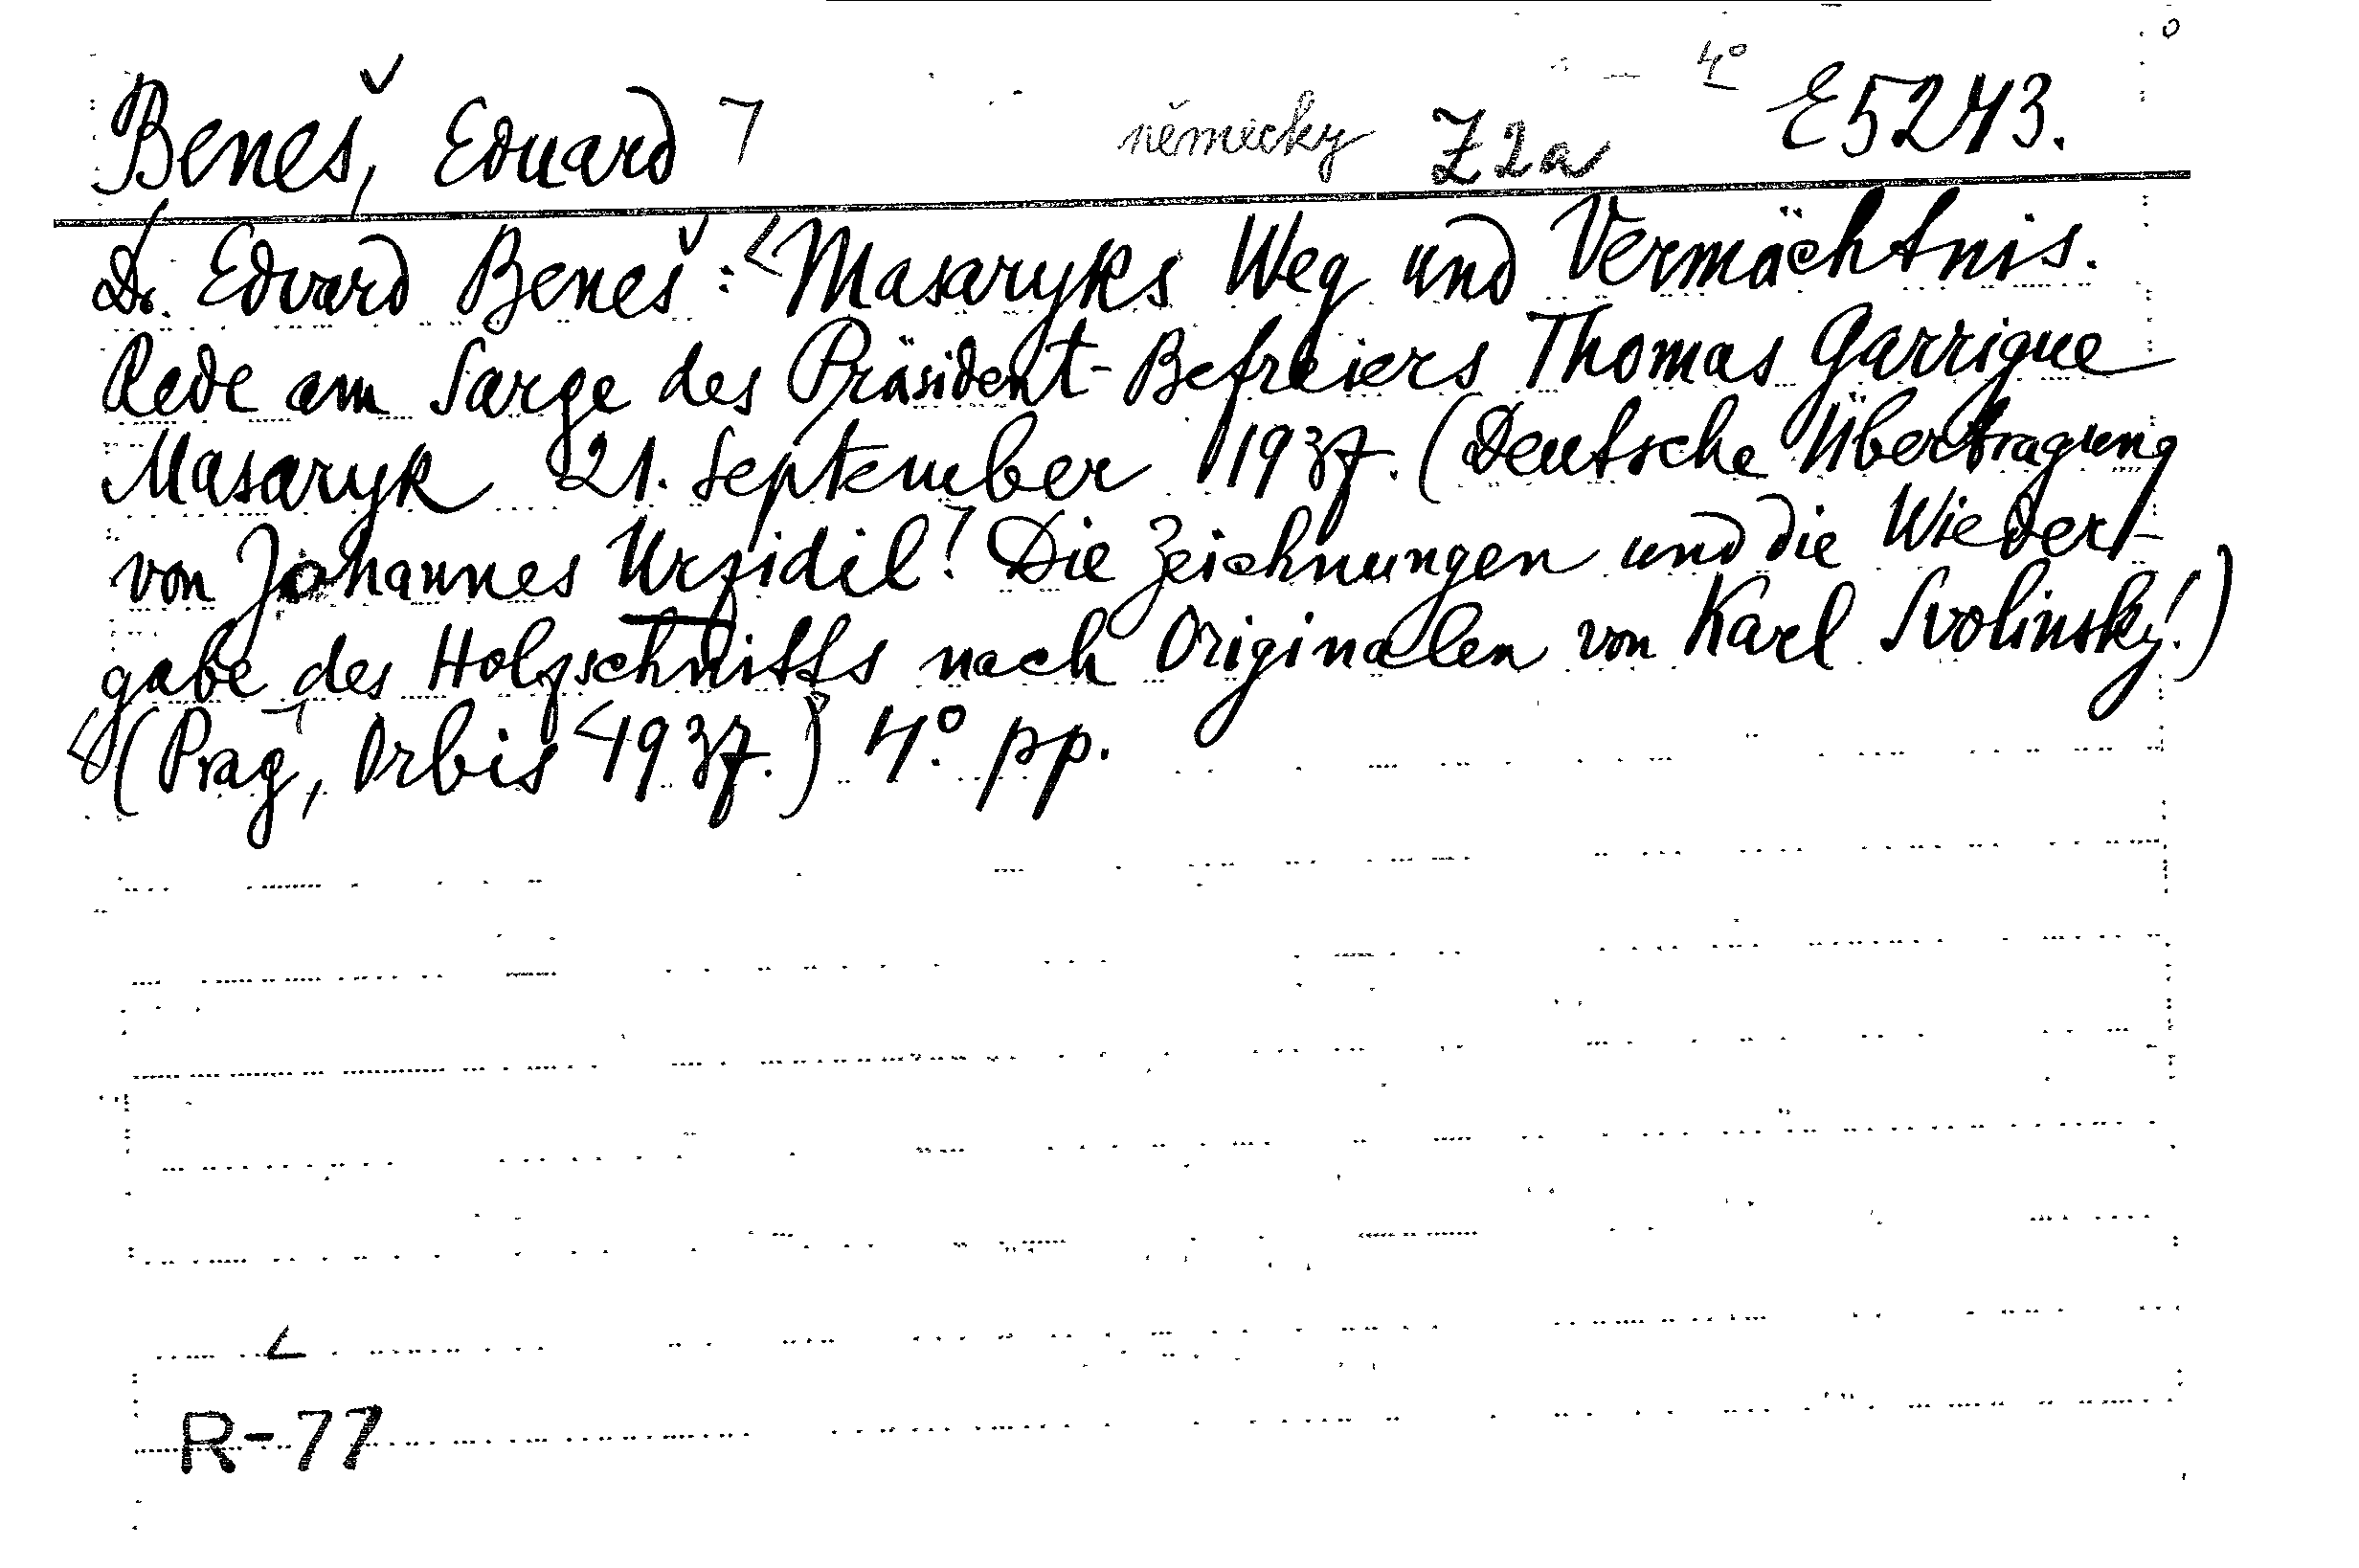 Beneš, Eduard německy Z2a 4° E5243.
Dr. Edvard Beneš: Masaryks Weg und Vermächtnis.
Rede am Sarge des Präsident-Befreiers Thomas Garrigue
Masaryk 21. September 1937. (Deutsche Übertragung
von Johannes Urzidil! Die Zeichnungen und die Wieder-
gabe des Holzschnitts nach Originalen von Karl Svolinský!)
(Prag, Orbis 1937.) 4° pp.
R-77